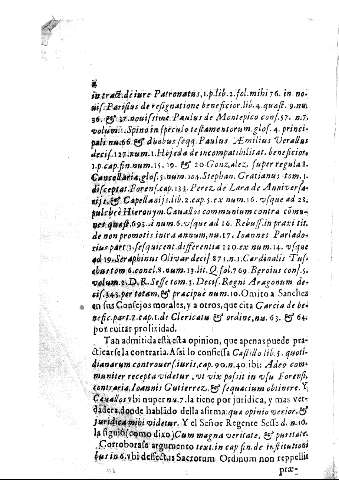 in tract. de iure Patronatus, 1. p. lib. 2. fol. mihi 76. in no-
uis. Parisius de resignatione beneficior. lib. 4. quæst. 9. nu.
36. & 37. nouissime Paulus de Montepico cons. 57. n. 7.
volum. 1. Spino in speculo testamentorum. glos. 4. princi-
pali nu. 66. & duobus seqq. Paulus Æmilius Verallus
decis. 127. num. 1. Hojeda de incompatibilitat. beneficior.
1. p. cap. fin. num. 15. 19. & 20. Gonzalez. super regula 8.
Cancellaria, glos. 5. num. 104. Stephan. Gratianus tom. 1.
disceptat. Forens. cap. 133. Perez de Lara de Anniuersa-
rijs, & Capellanijs. lib. 2. cap. 5. ex num. 16. vsque ad 23.
pulchrè Hieronym. Cauallos communium contra cōmu-
nes quæst. 695. à num. 6. vsque ad 16. Rebuff. in praxi tit.
de non promotis intra annum, nu. 17. Ioannes Parlado-
rius part. 3. sesquicent. differentia 110. ex num. 14. vsque
ad 19. Seraphinus Oliuar decis. 871. n. 1. Cardinalis Tus-
chus tom. 6. concl. 8. num. 13. lit. Q. fol. 769. Beroius cons. 5.
volum. 2. D. R. Sesse tom. 3. Decis. Regni Aragonum de-
cis. 343. per totam, & præcipuè num. 10. Omito a Sanchez
en sus Consejos morales, y a otros, que cita Garcia de be-
nefic. part. 2. cap. 1. de Clericatu & ordine, nu. 63. & 64.
por euitar prolixidad.
Tan admitida està esta opinion, que apenas puede pra-
cticarse la contraria. Así lo confiessa Castillo lib. 5. quoti-
dianarum controuers. iuris, cap. 90. n. 40. ibi: Adeo com-
muniter recepta videtur, vt vix possit in vsu Forensi,
contraria. Ioannis Gutierrez, & sequacium obtinere. Y
Cauallos vbi nuper nu. 7. la tiene por juridica, y mas ver-
dadera, donde hablado della afirma: qua opinio verior, &
juridica mihi videtur. Y el Señor Regente Sesse d. n. 10.
la siguió (como dixo) Cum magna veritate, & puritate.
Corroborase argumento text. in cap. fin. de institutioni
bus in 6. vbi Sacrorum Ordinum non repellit
præ-